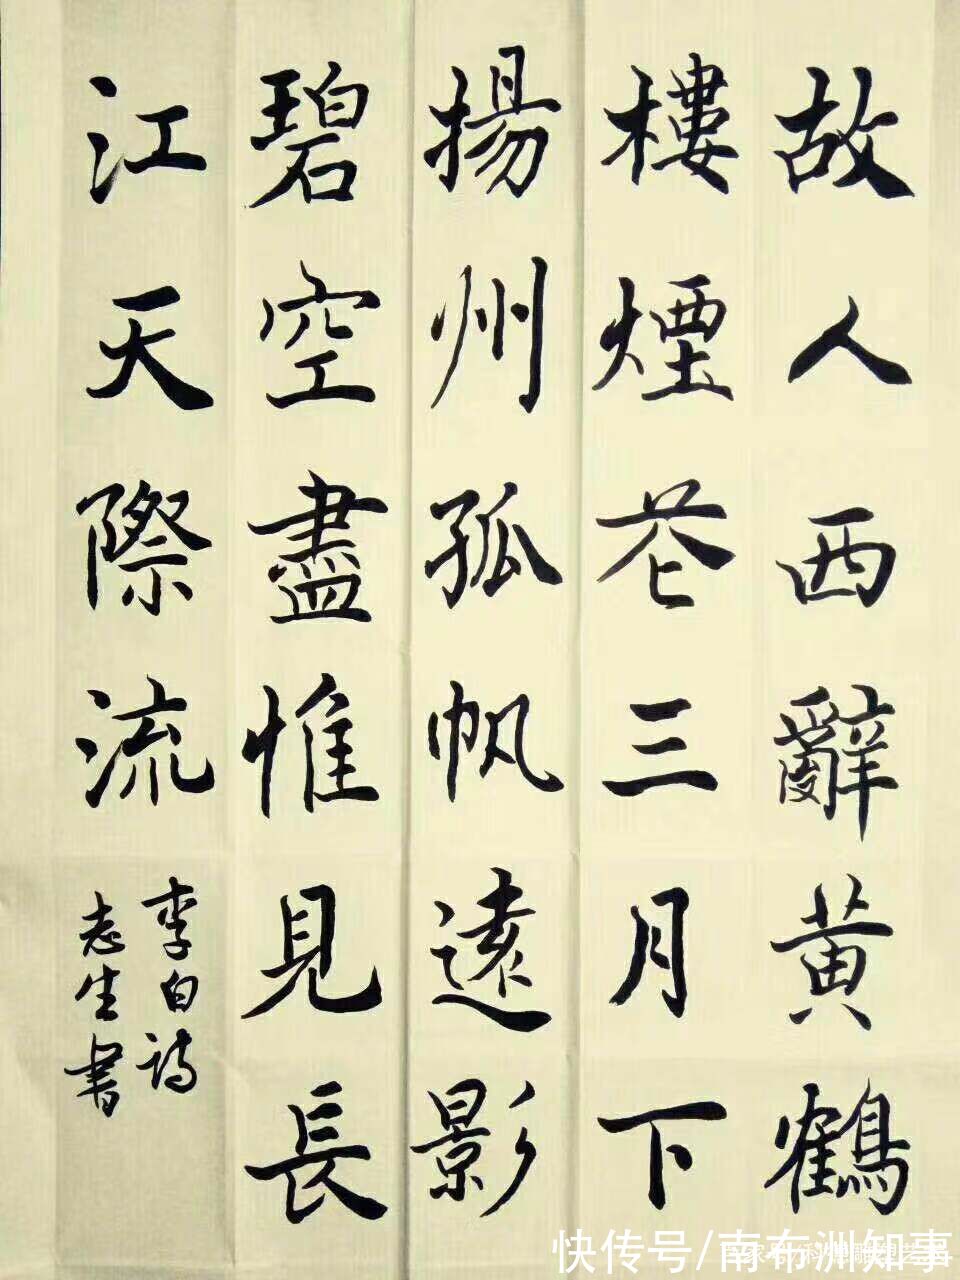 故人西辭黄鶴
樓煙花三月下
揚州孤帆遠影
碧空盡惟見長
江天際流
李白詩
志生書
快传号/南布洲知事